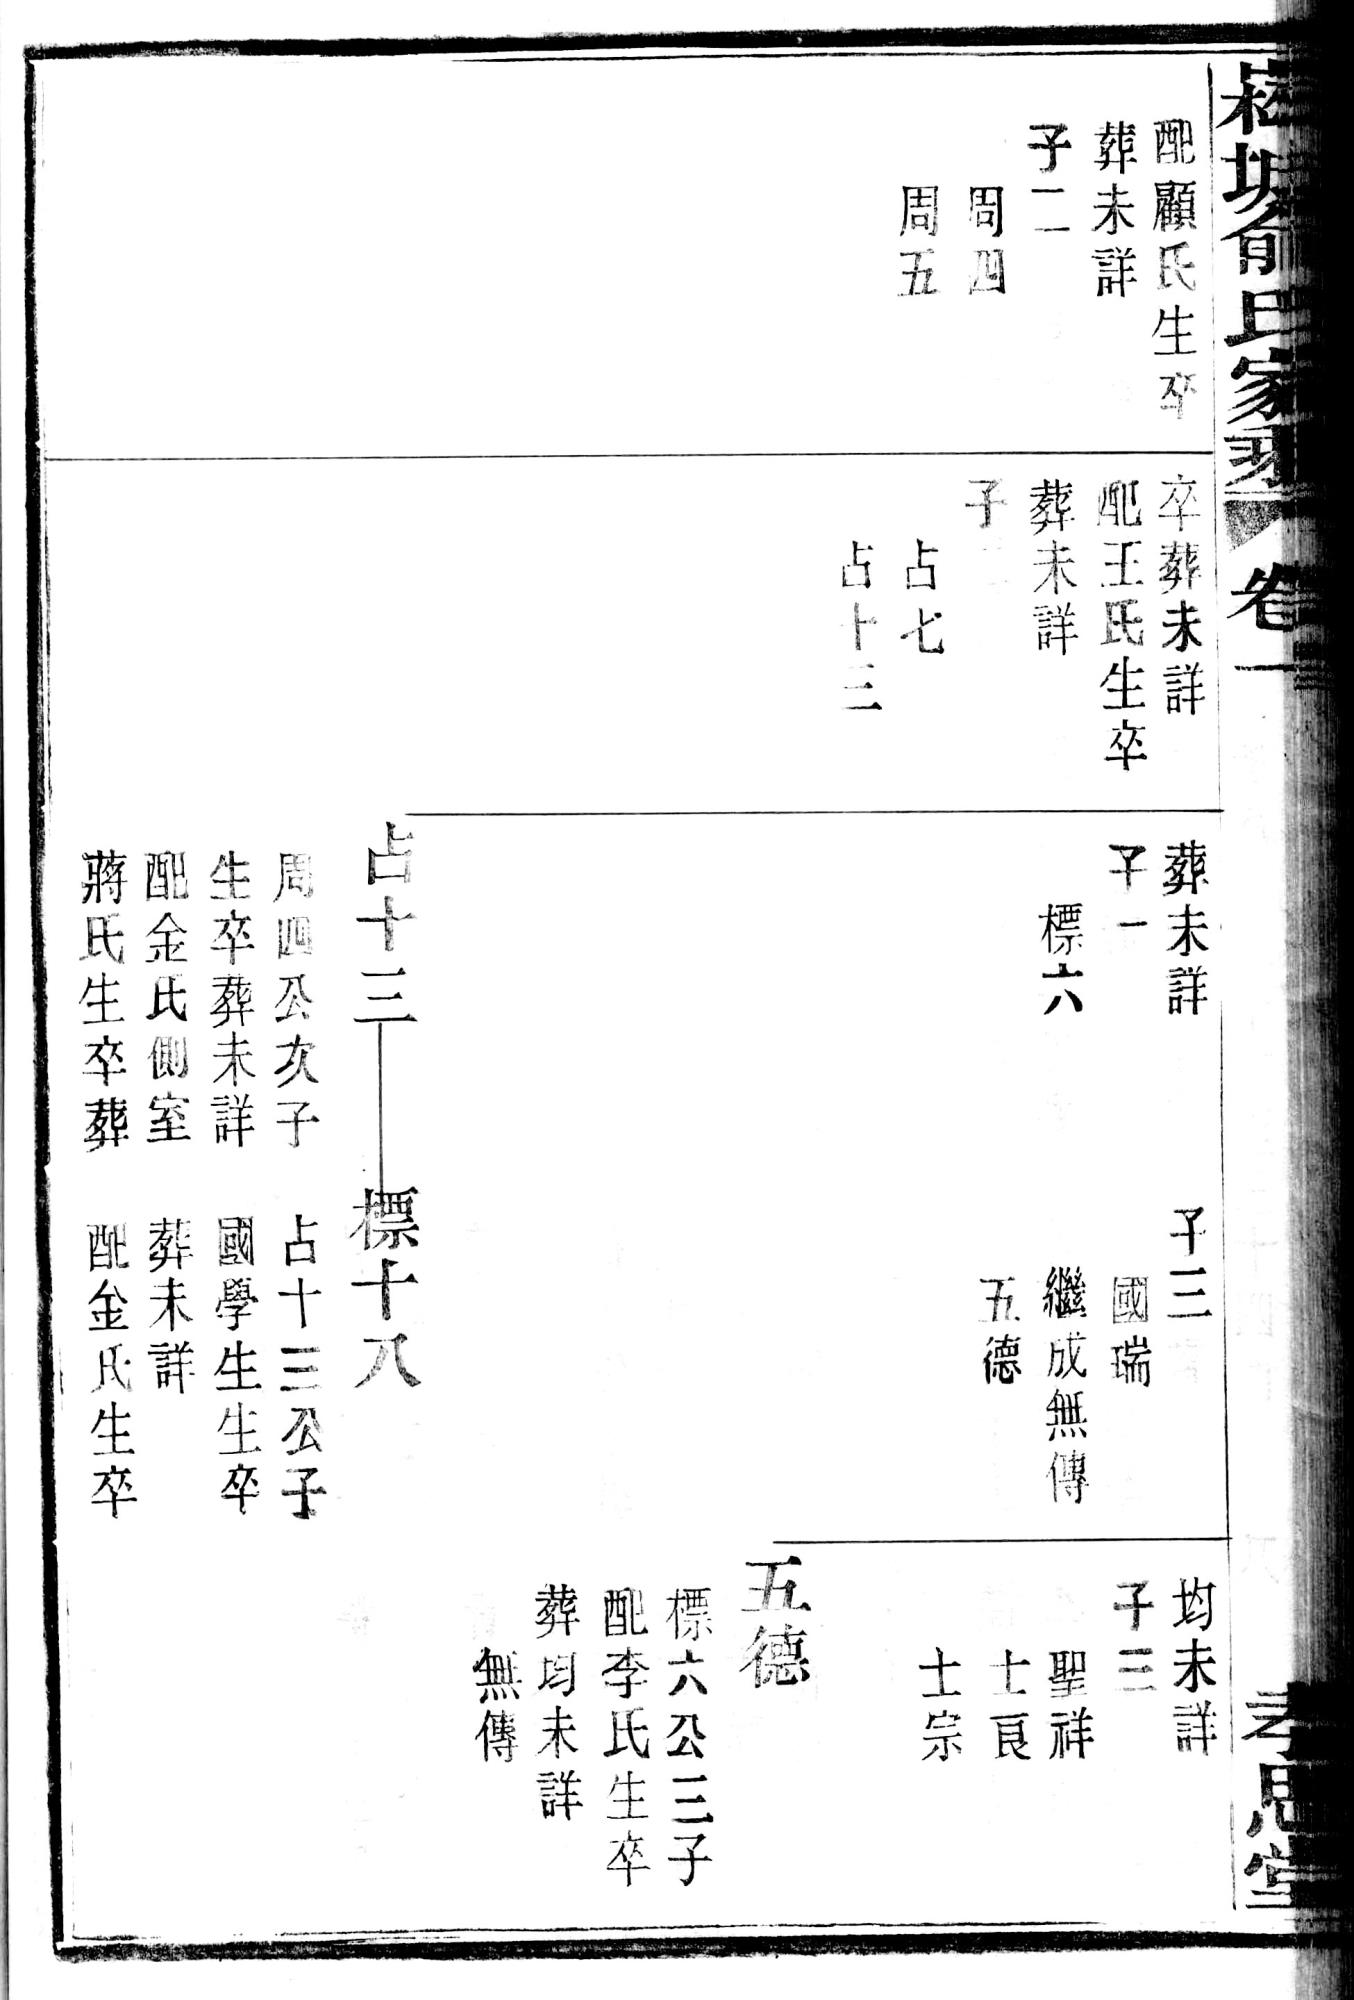 俞氏家乘 卷一
孝思堂
配顧氏生卒
葬未詳
子二
周四
周五
卒葬未詳
配王氏生卒
葬未詳
子二
占七
占十三
葬未詳
子一
標六
占十三
周四公次子
生卒葬未詳
配金氏側室
蔣氏生卒葬
子三
國瑞
繼成無傳
五德
標十八
占十三公子
國學生生卒
葬未詳
配金氏生卒
均未詳
子三
聖祥
士良
士宗
五德
標六公三子
配李氏生卒
葬均未詳
無傳